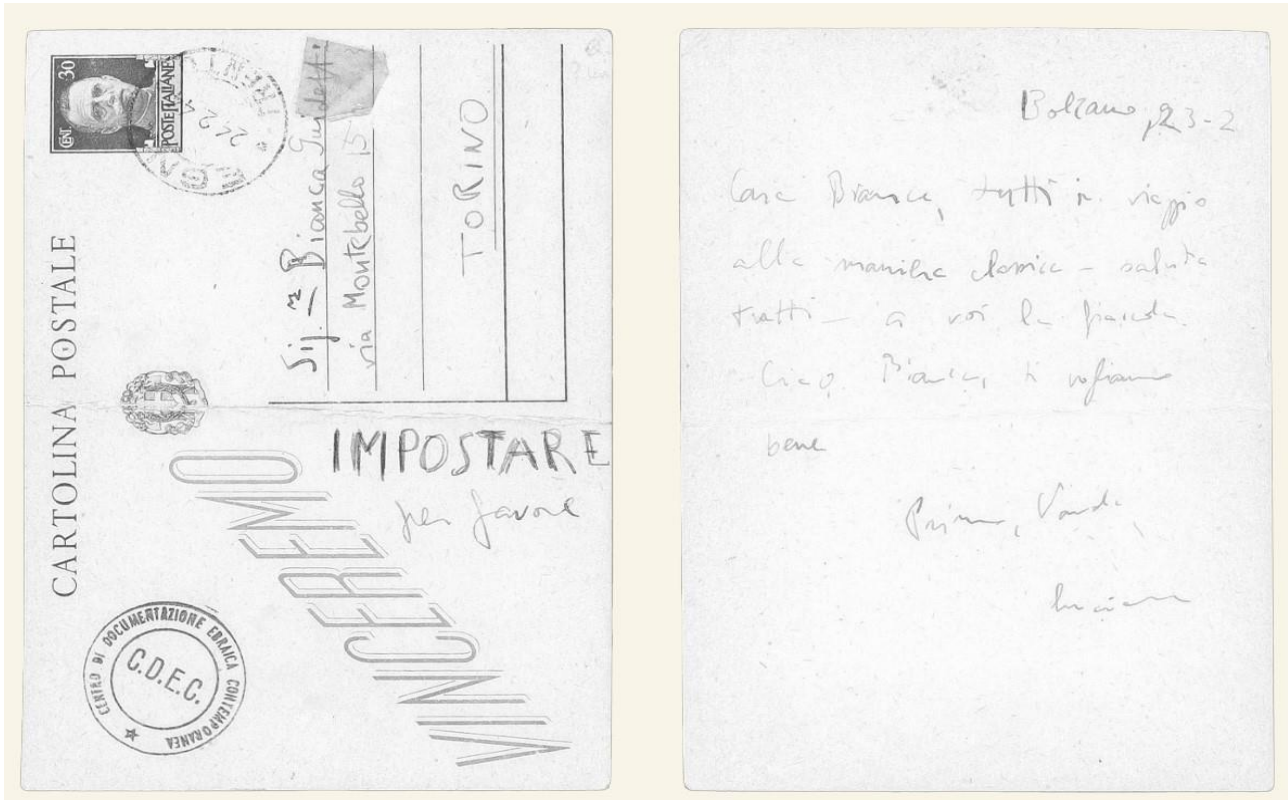 CENT. 30
POSTE ITALIANE
24 2 4
CARTOLINA POSTALE
Sig.na Bianca
via Montebello 15
TORINO
IMPOSTARE
per favore
VINCEREMO
CENTRO DI DOCUMENTAZIONE EBRAICA CONTEMPORANEA
C.D.E.C.
Bolzano, 23-2
Cara Bianca, tutti in viaggio
alla maniera classica - saluta
tutti - a voi la fiaccola.
Ciao, Bianca, ti vogliamo
bene
Primo, Vanda,
Luciana